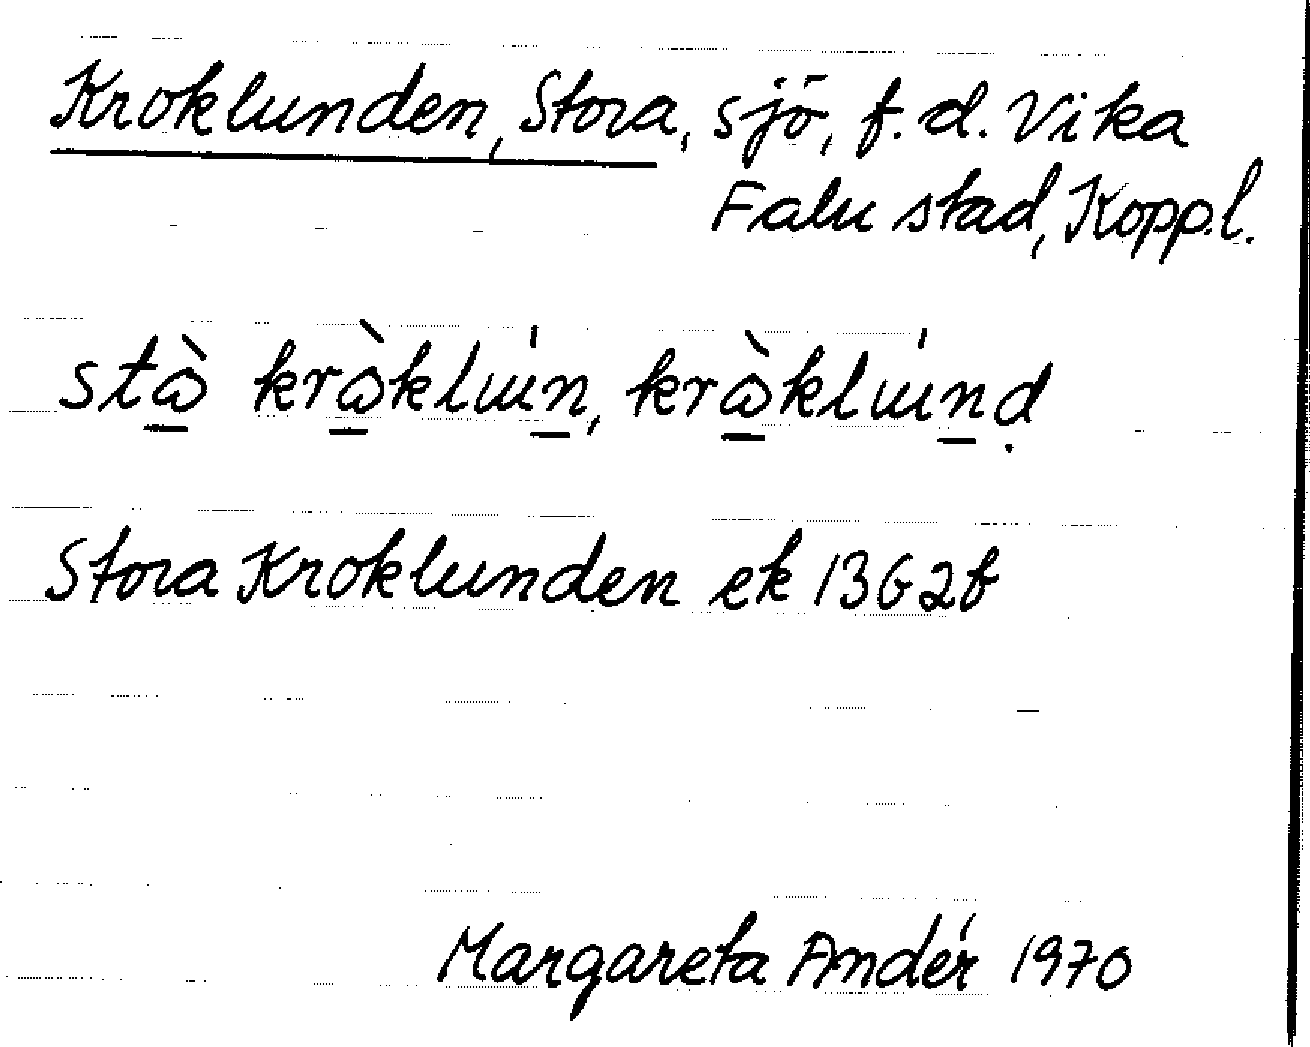 Kroklunden, Stora, sjö, f.d. Vika
Falu stad, Kopp.l.
Stora Kroklunden ek 13G2f
Margareta Andér 1970